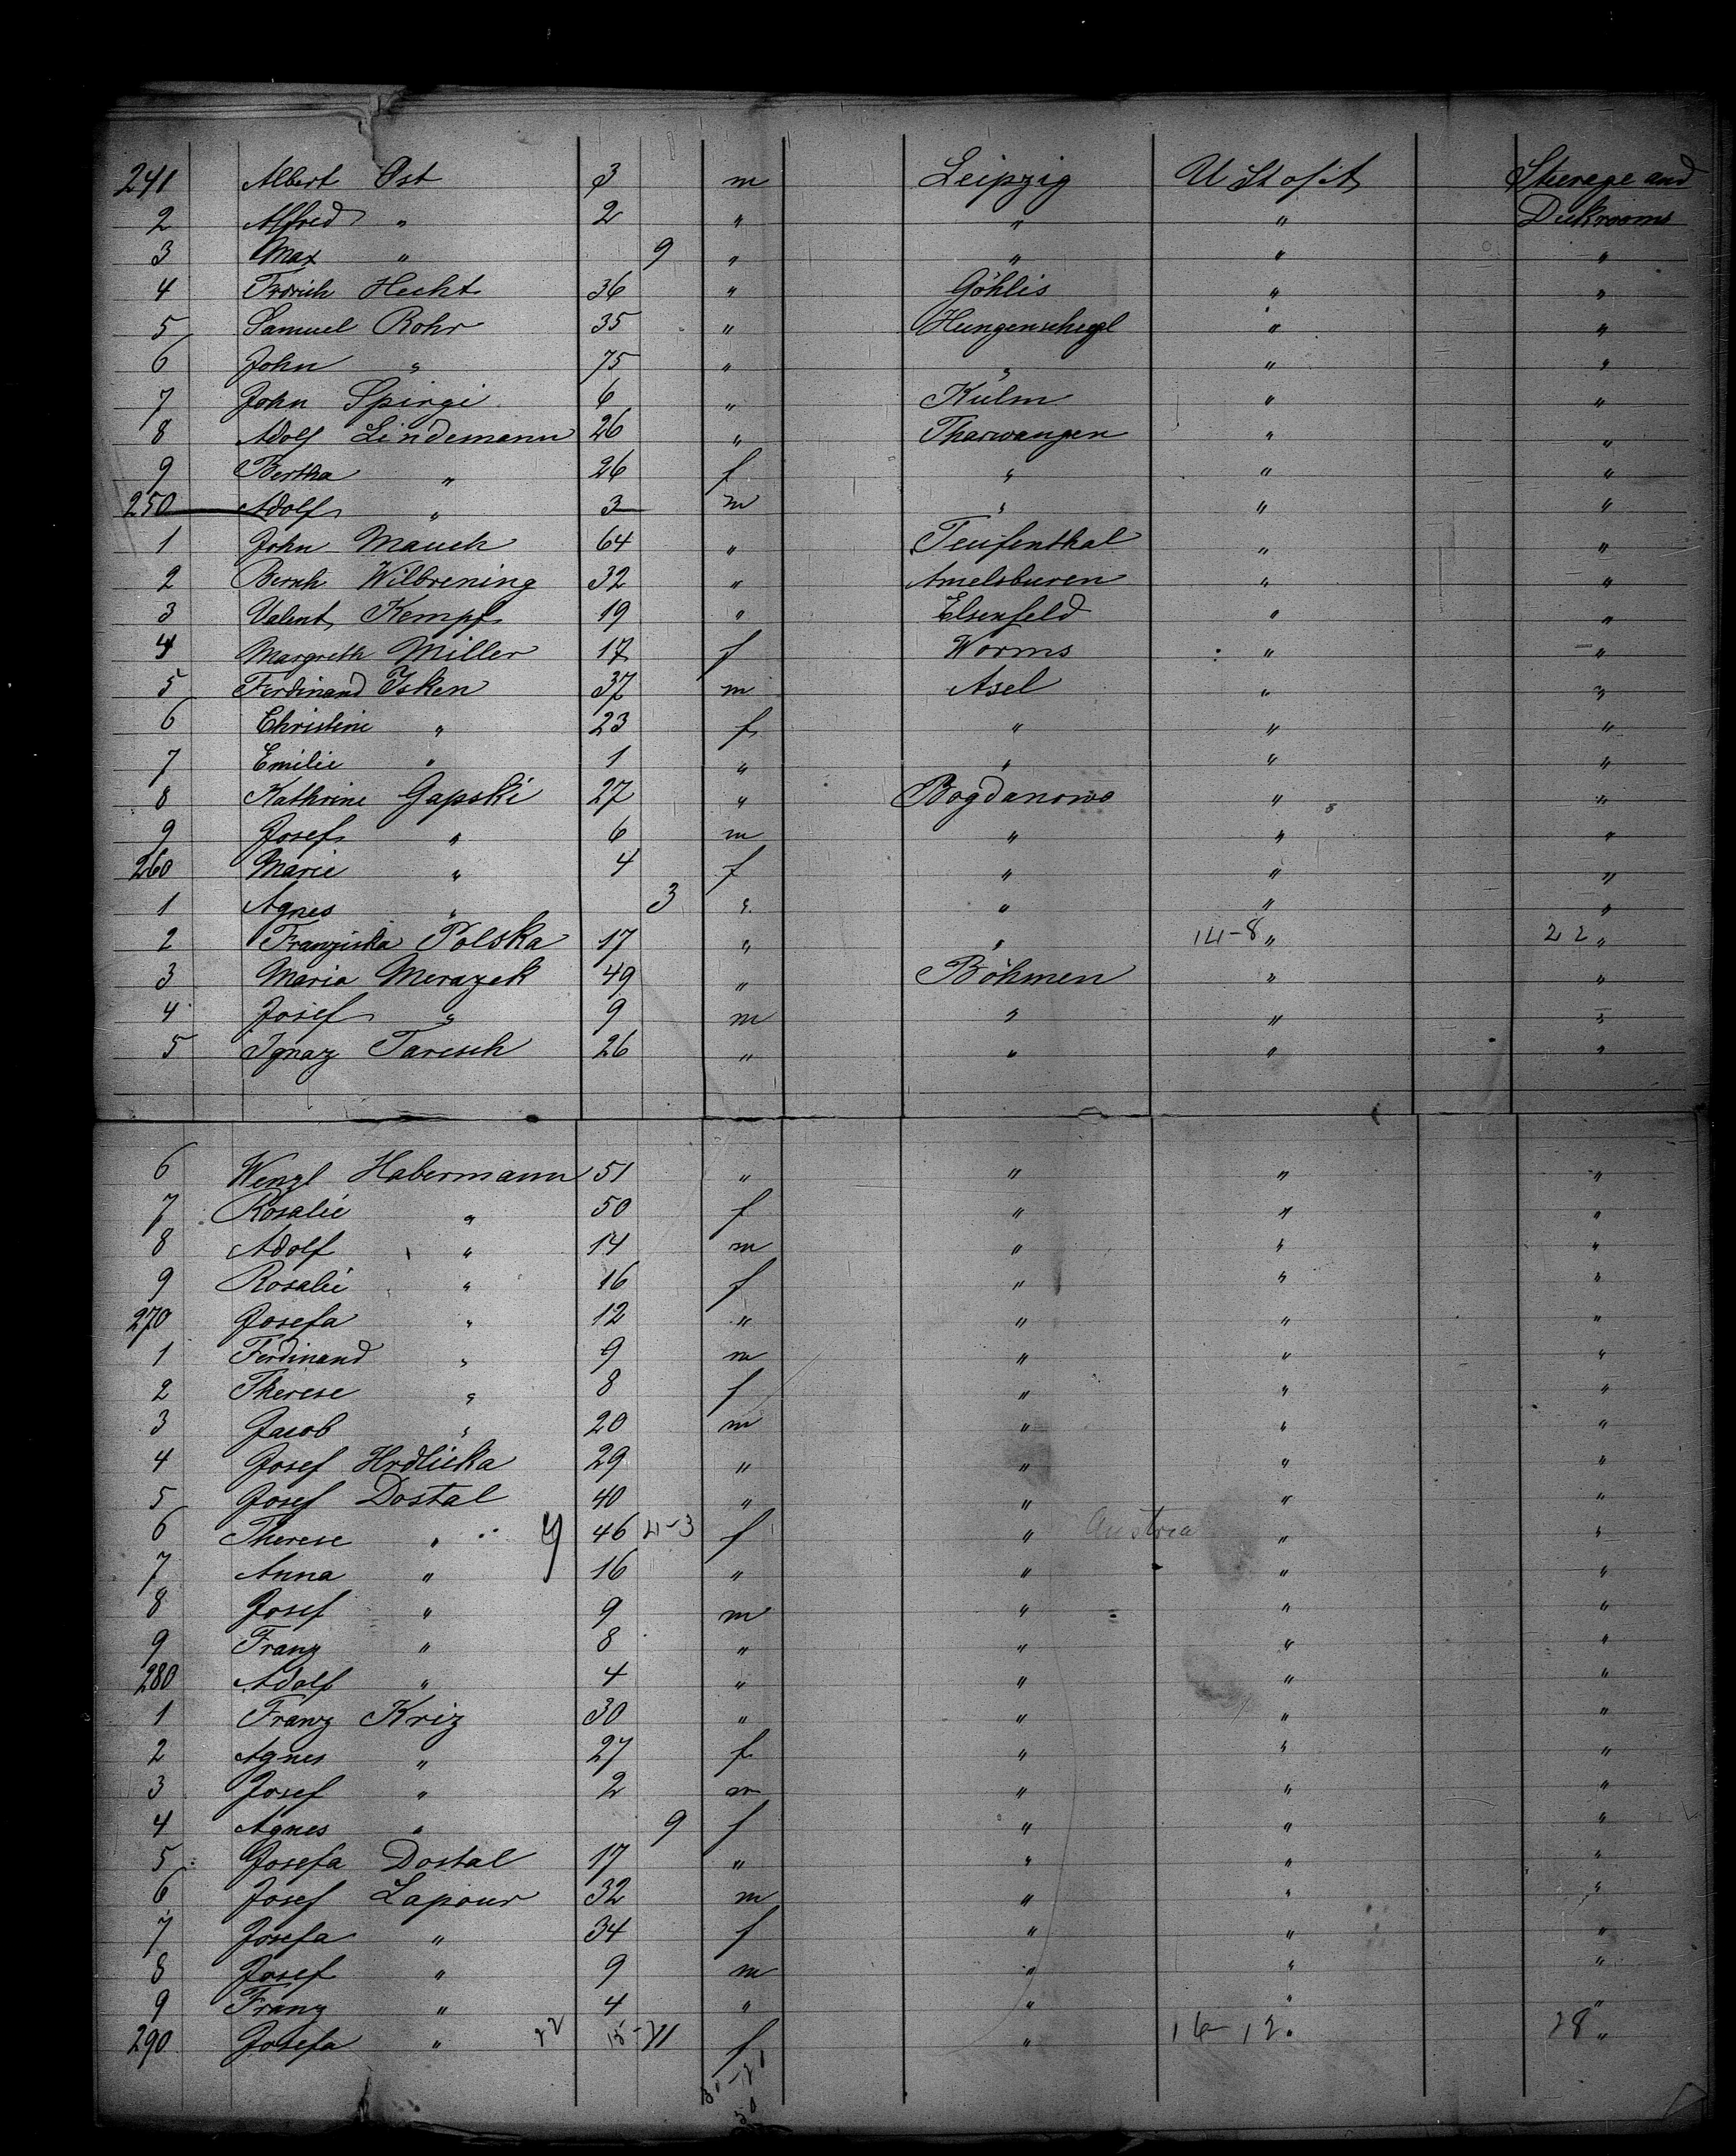 241 Albert Ost 3 m Leipzig U St of A Steerage and
2 Alfred " 2 " " " Deckrooms
3 Max " 9 " " " "
4 Frdrich Hecht 36 " Göhlis " "
5 Samuel Rohr 35 " Hungenschegl " "
6 John " 75 " " " "
7 John Spirgi 6 " Kulm " "
8 Adolf Lindemann 26 " Tharwangen " "
9 Bertha " 26 f " " "
250 Adolf " 3 m " " "
1 John Mauch 64 " Teufenthal " "
2 Bernh Wilbrening 32 " Amelsburen " "
3 Valent. Kempf 19 " Elsenfeld " "
4 Margreth Miller 17 f Worms " "
5 Ferdinand Isken 37 m Asel " "
6 Christine " 23 f " " "
7 Emilie " 1 " " " "
8 Kathrine Gapski 27 " Bogdanowo " "
9 Josef " 6 m " " "
260 Marie " 4 f " " "
1 Agnes " 3 " " " "
2 Franziska Polska 17 " " 14-8 " 22 "
3 Maria Merazek 49 " Böhmen " "
4 Josef " 9 m " " "
5 Ignaz Taresch 26 " " " "
6 Wenzl Habermann 51 " " " "
7 Rosalie " 50 f " " "
8 Adolf " 14 m " " "
9 Rosalie " 16 f " " "
270 Josefa " 12 " " " "
1 Ferdinand " 9 m " " "
2 Therese " 8 f " " "
3 Jacob " 20 m " " "
4 Josef Hrdlicka 29 " " " "
5 Josef Dostal 40 " " " "
6 Therese " 46 4-3 f " Austria " "
7 Anna " 16 " " " "
8 Josef " 9 m " " "
9 Franz " 8 " " " "
280 Adolf " 4 " " " "
1 Franz Kriz 30 " " " "
2 Agnes " 27 f " " "
3 Josef " 2 m " " "
4 Agnes " 9 f " " "
5 Josefa Dostal 17 " " " "
6 Josef Lapour 32 m " " "
7 Josefa " 34 f " " "
8 Josef " 9 m " " "
9 Franz " 4 " " " "
290 Josefa " 22 15-11 f " 16-12 " 28 "